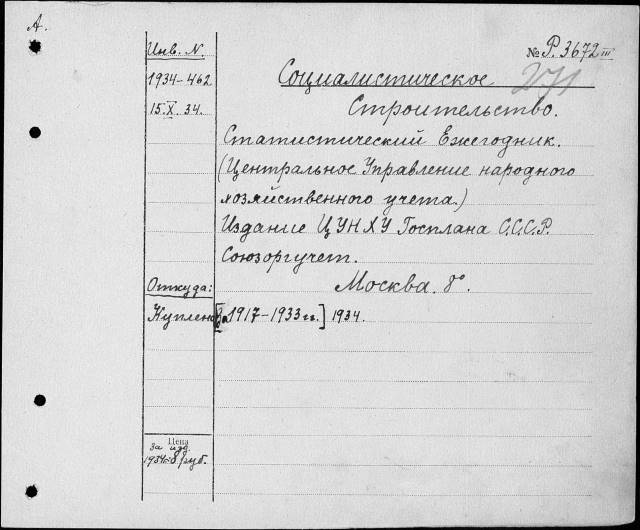 А.
Инв. N.
№ Р. 3672 III
1934-462
Социалистическое
15.X.34.
Строительство.
Статистический Ежегодник.
(Центральное Управление народного
хозяйственного учета.)
Издание ЦУНХУ Госплана С.С.С.Р.
Союзоргучет.
Откуда:
Москва. 8°.
Куплено
[за 1917-1933 гг.] 1934.
Цена
за изд.
1934-8 руб.